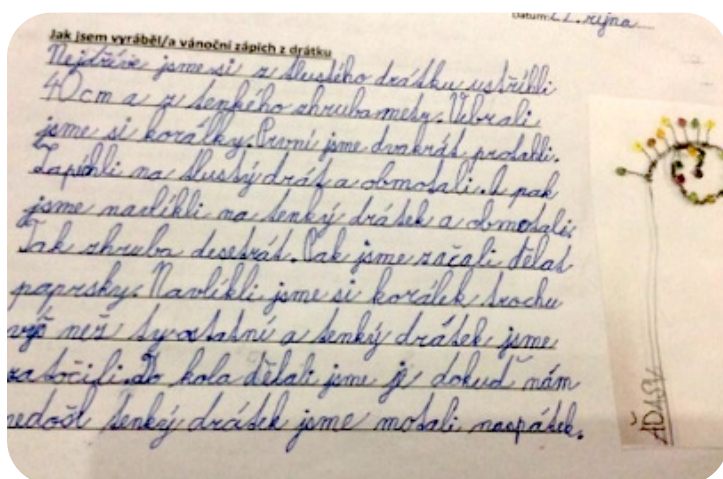 Datum: 21. října
Jak jsem vyráběl/a vánoční zápich z drátku
Nejdříve jsme si z tlustého drátku ustřihli
40 cm a z tenkého zhruba metr. Vybrali
jsme si korálky. První jsme dvakrát protáhli.
Zapíchli na tlustý drát a obmotali. A pak
jsme navlíkli na tenký drátek a obmotali.
Tak zhruba desetrát. Pak jsme začali dělat
paprsky. Navlíkli jsme si korálek trochu
výš než ty ostatní a tenký drátek jsme
zatočili. Do kola dělali jsme je dokuď nám
nedošl tenký drátek jsme motali naspátek.